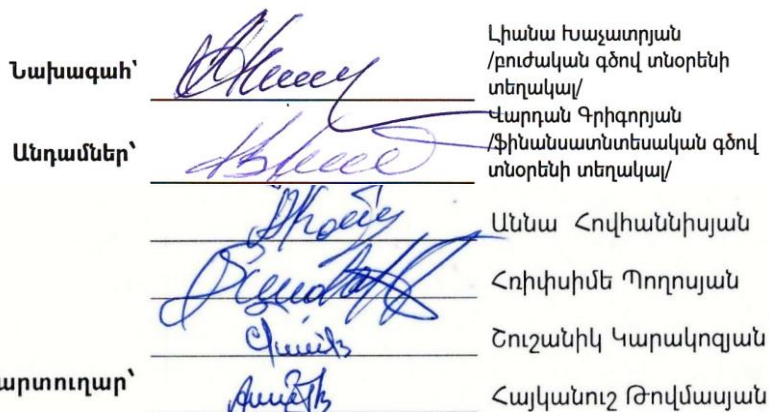 Լիանա Խաչատրյան
Նախագահ՝ /բուժական գծով տնօրենի
տեղակալ/
Վարդան Գրիգորյան
Անդամներ՝ /ֆինանսատնտեսական գծով
տնօրենի տեղակալ/
Աննա Հովհաննիսյան
Հռիփսիմե Պողոսյան
Շուշանիկ Կարակոզյան
արտուղար՝ Հայկանուշ Թովմասյան